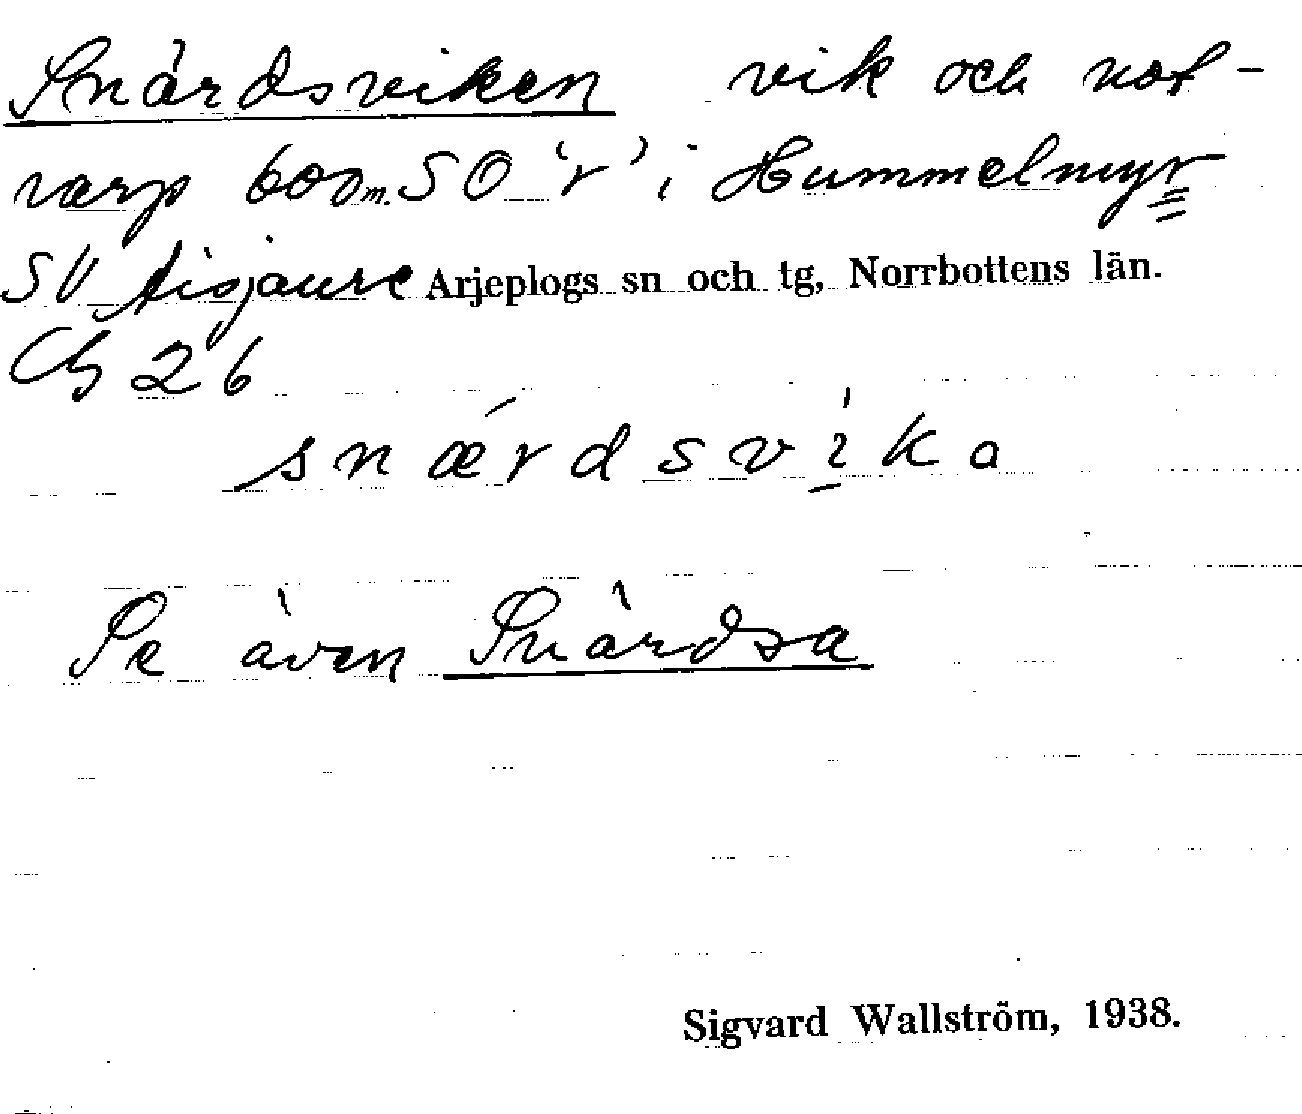 Snärdsviken vik och not-
varp 600 m. SO 'r' i Hummelmyr
SV Aisjaure Arjeplogs sn och tg, Norrbottens län.
26
snærdsvika
Se även Snärdsa
Sigvard Wallström, 1938.